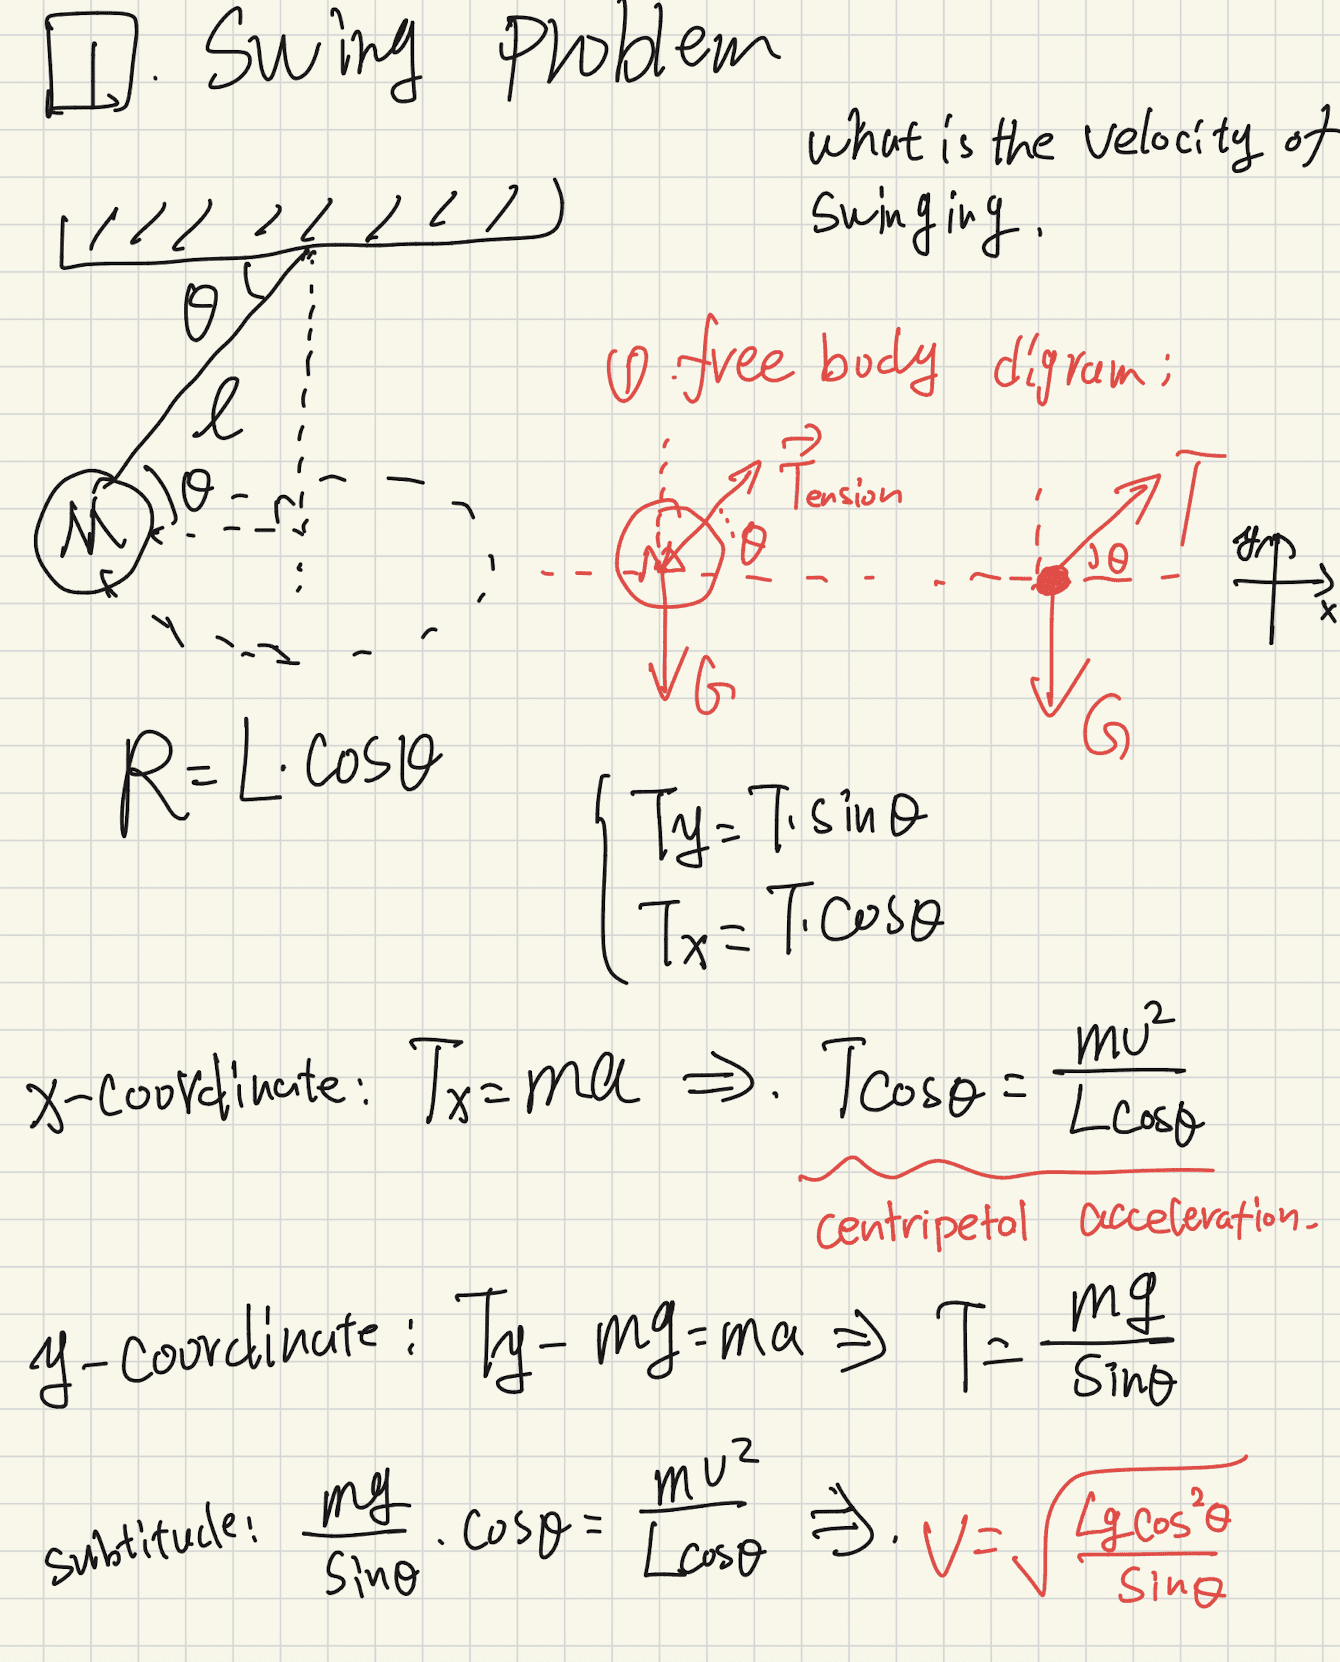 1. Swing Problem
what is the velocity of
swinging.
θ
l
θ
r
M
① free body digram:
Tension
θ
M
G
T
θ
G
y
x
R = L·cosθ
Ty = T·sinθ
Tx = T·cosθ
x-coordinate: Tx = ma ⇒. Tcosθ = mv²/Lcosθ
centripetal acceleration.
y-coordinate: Ty - mg = ma ⇒ T = mg/sinθ
subtitude: mg/sinθ · cosθ = mv²/Lcosθ ⇒. V = √(Lgcos²θ/sinθ)